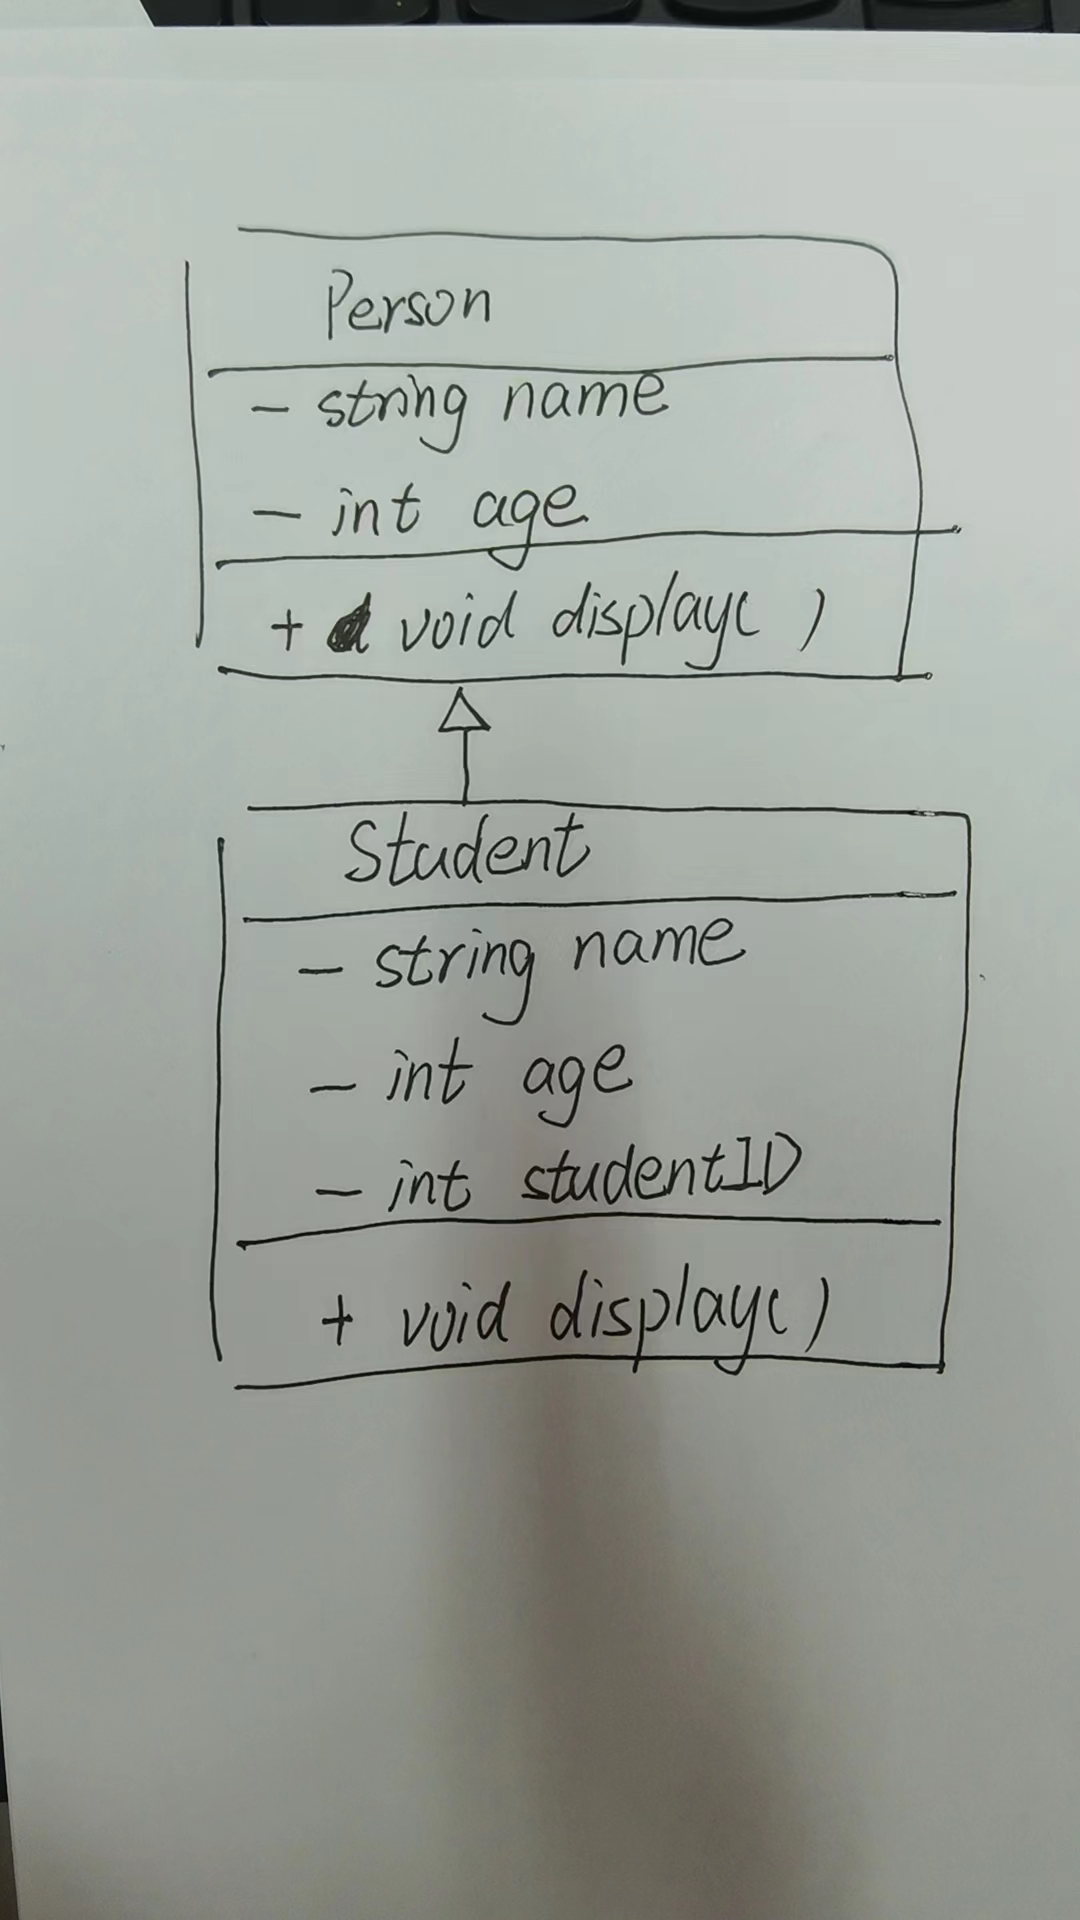 Person
- string name
- int age
+ void display( )
Student
- string name
- int age
- int studentID
+ void display( )